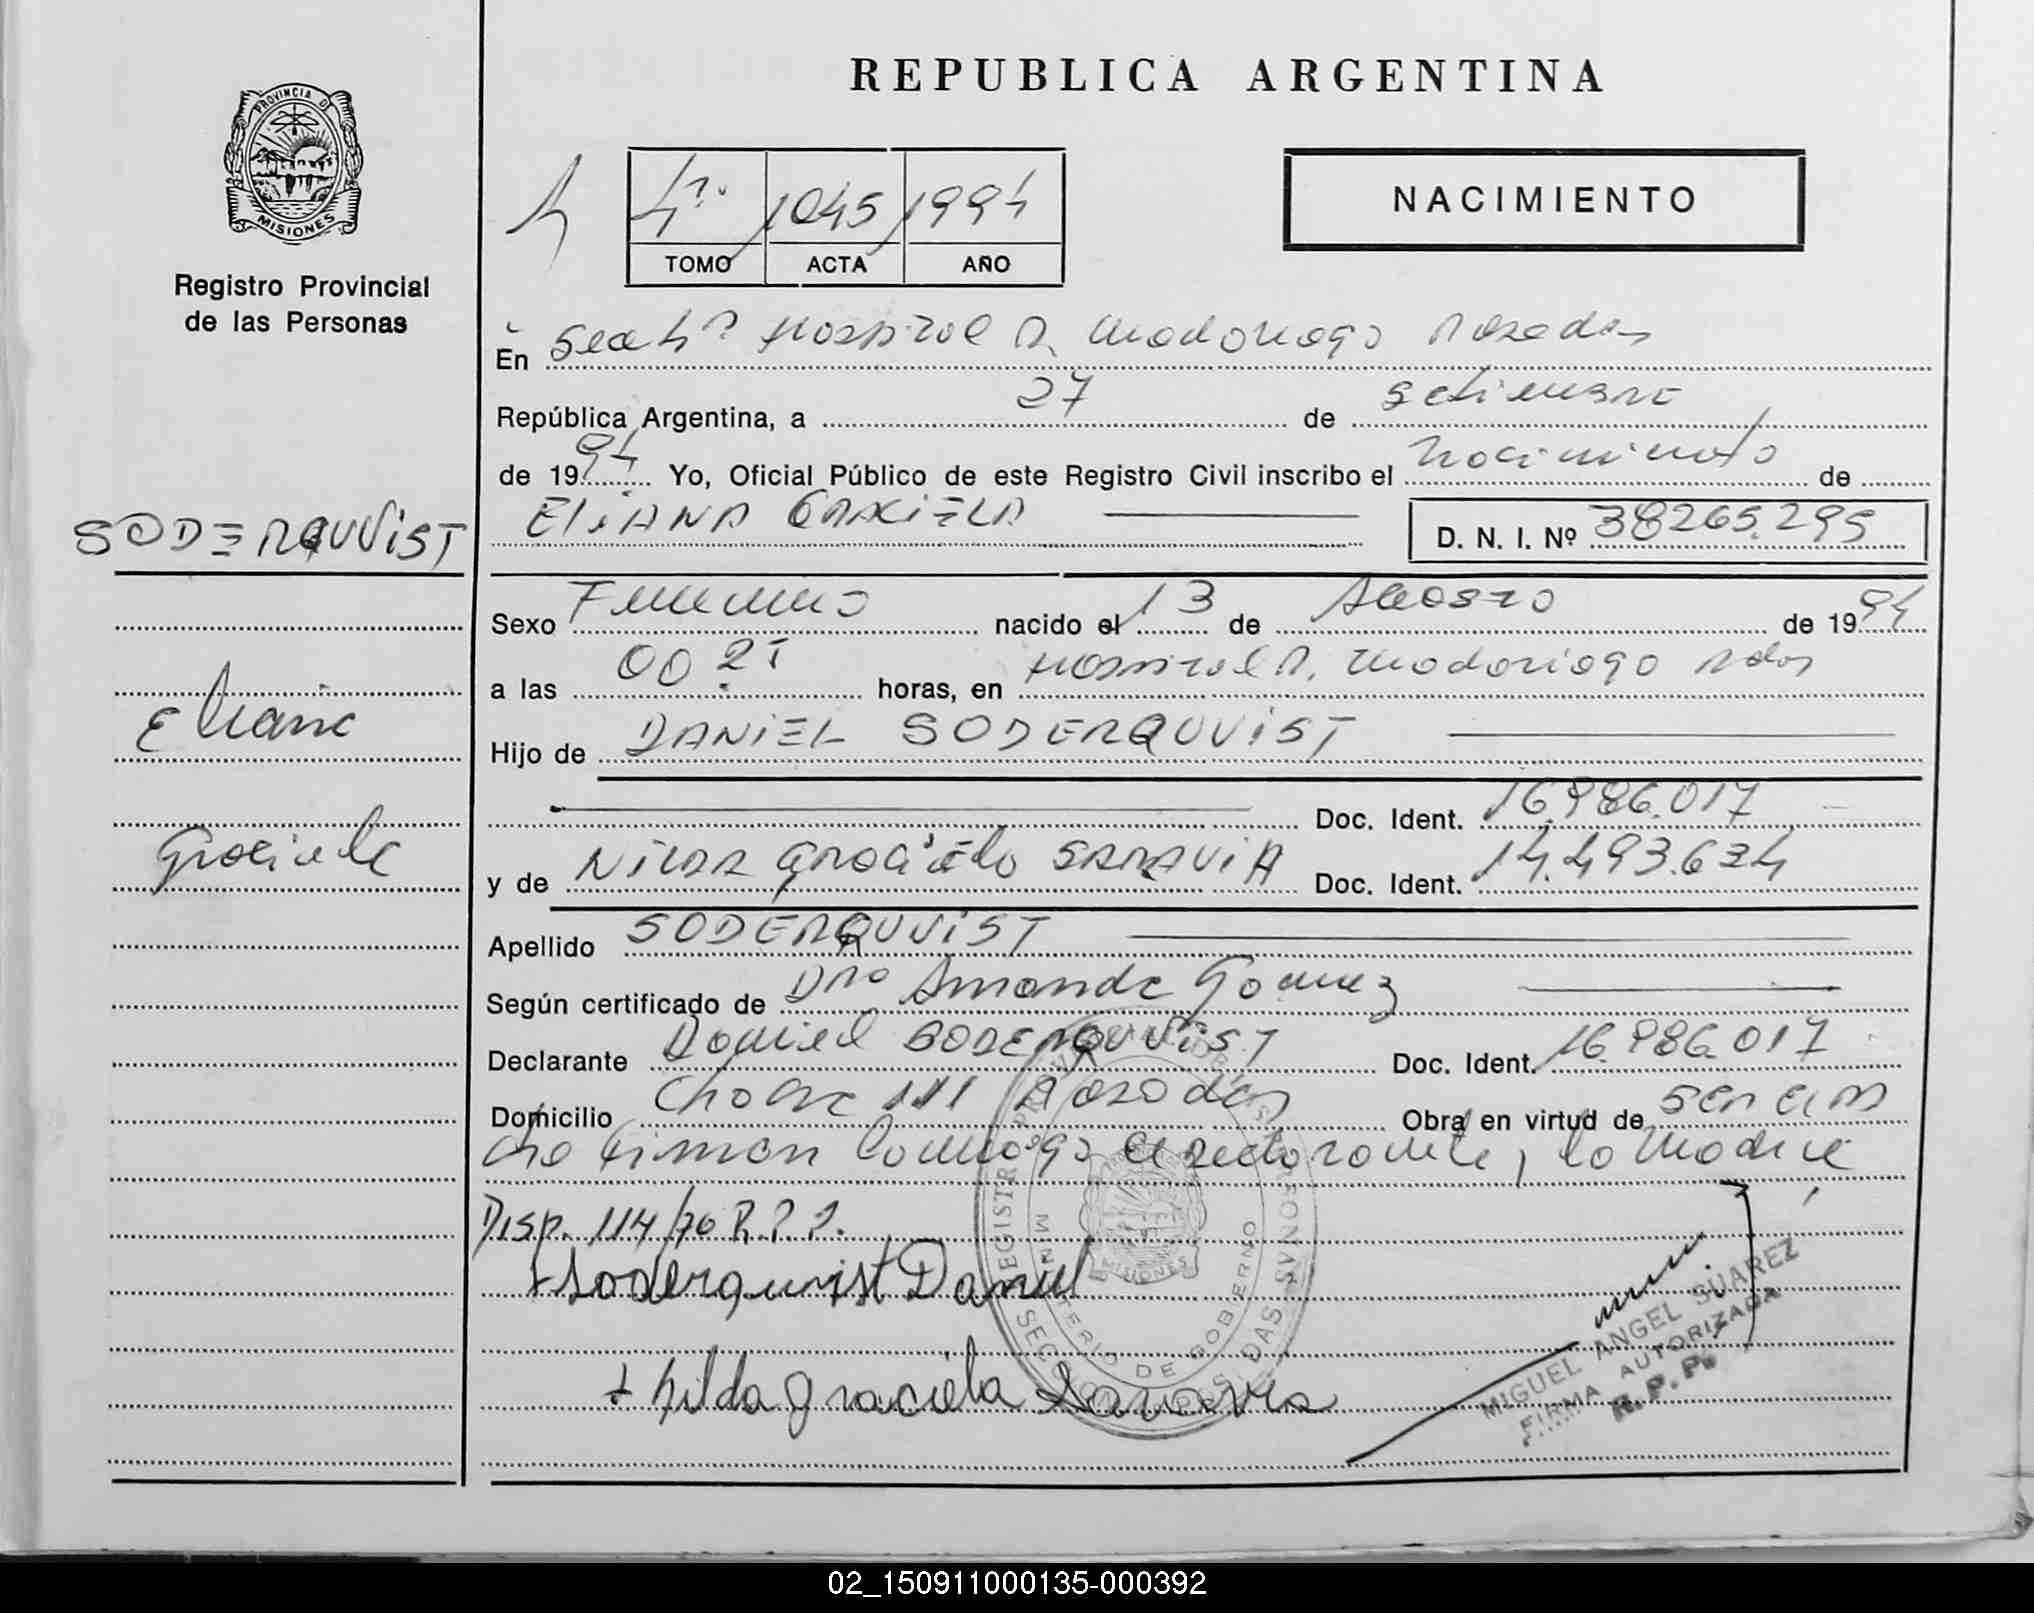 REPUBLICA ARGENTINA
PROVINCIA DE
MISIONES
Registro Provincial
de las Personas
4º 1045 1994
TOMO ACTA AÑO
NACIMIENTO
En Secc 4ª Hospital R. Madariaga Posadas
República Argentina, a 27 de setiembre
de 1994 Yo, Oficial Público de este Registro Civil inscribo el nacimiento de
SODERQUVIST
ELIANA GRACIELA D. N. I. Nº 38265.295
Sexo Femenino nacido el 13 de Agosto de 1994
a las 00 horas, en Hospital R. Madariaga Pdas
Eliana
Hijo de DANIEL SODERQUVIST
Doc. Ident. 16.986.017
Graciela
y de Graciela SARAVIA Doc. Ident. 14.493.634
Apellido SODERQUVIST
Según certificado de Dra Amanda Gomez
Declarante Daniel SODERQUVIST Doc. Ident. 16.986.017
Domicilio 111 Posadas Obra en virtud de ser
firman conmigo el declarante, la madre
Disp. 114/70 R.P.P.
Soderquvist Daniel
hilda graciela Saravia
MINISTERIO DE GOBIERNO
MIGUEL ANGEL SUAREZ
FIRMA AUTORIZADA
R.P.P.
02_150911000135-000392